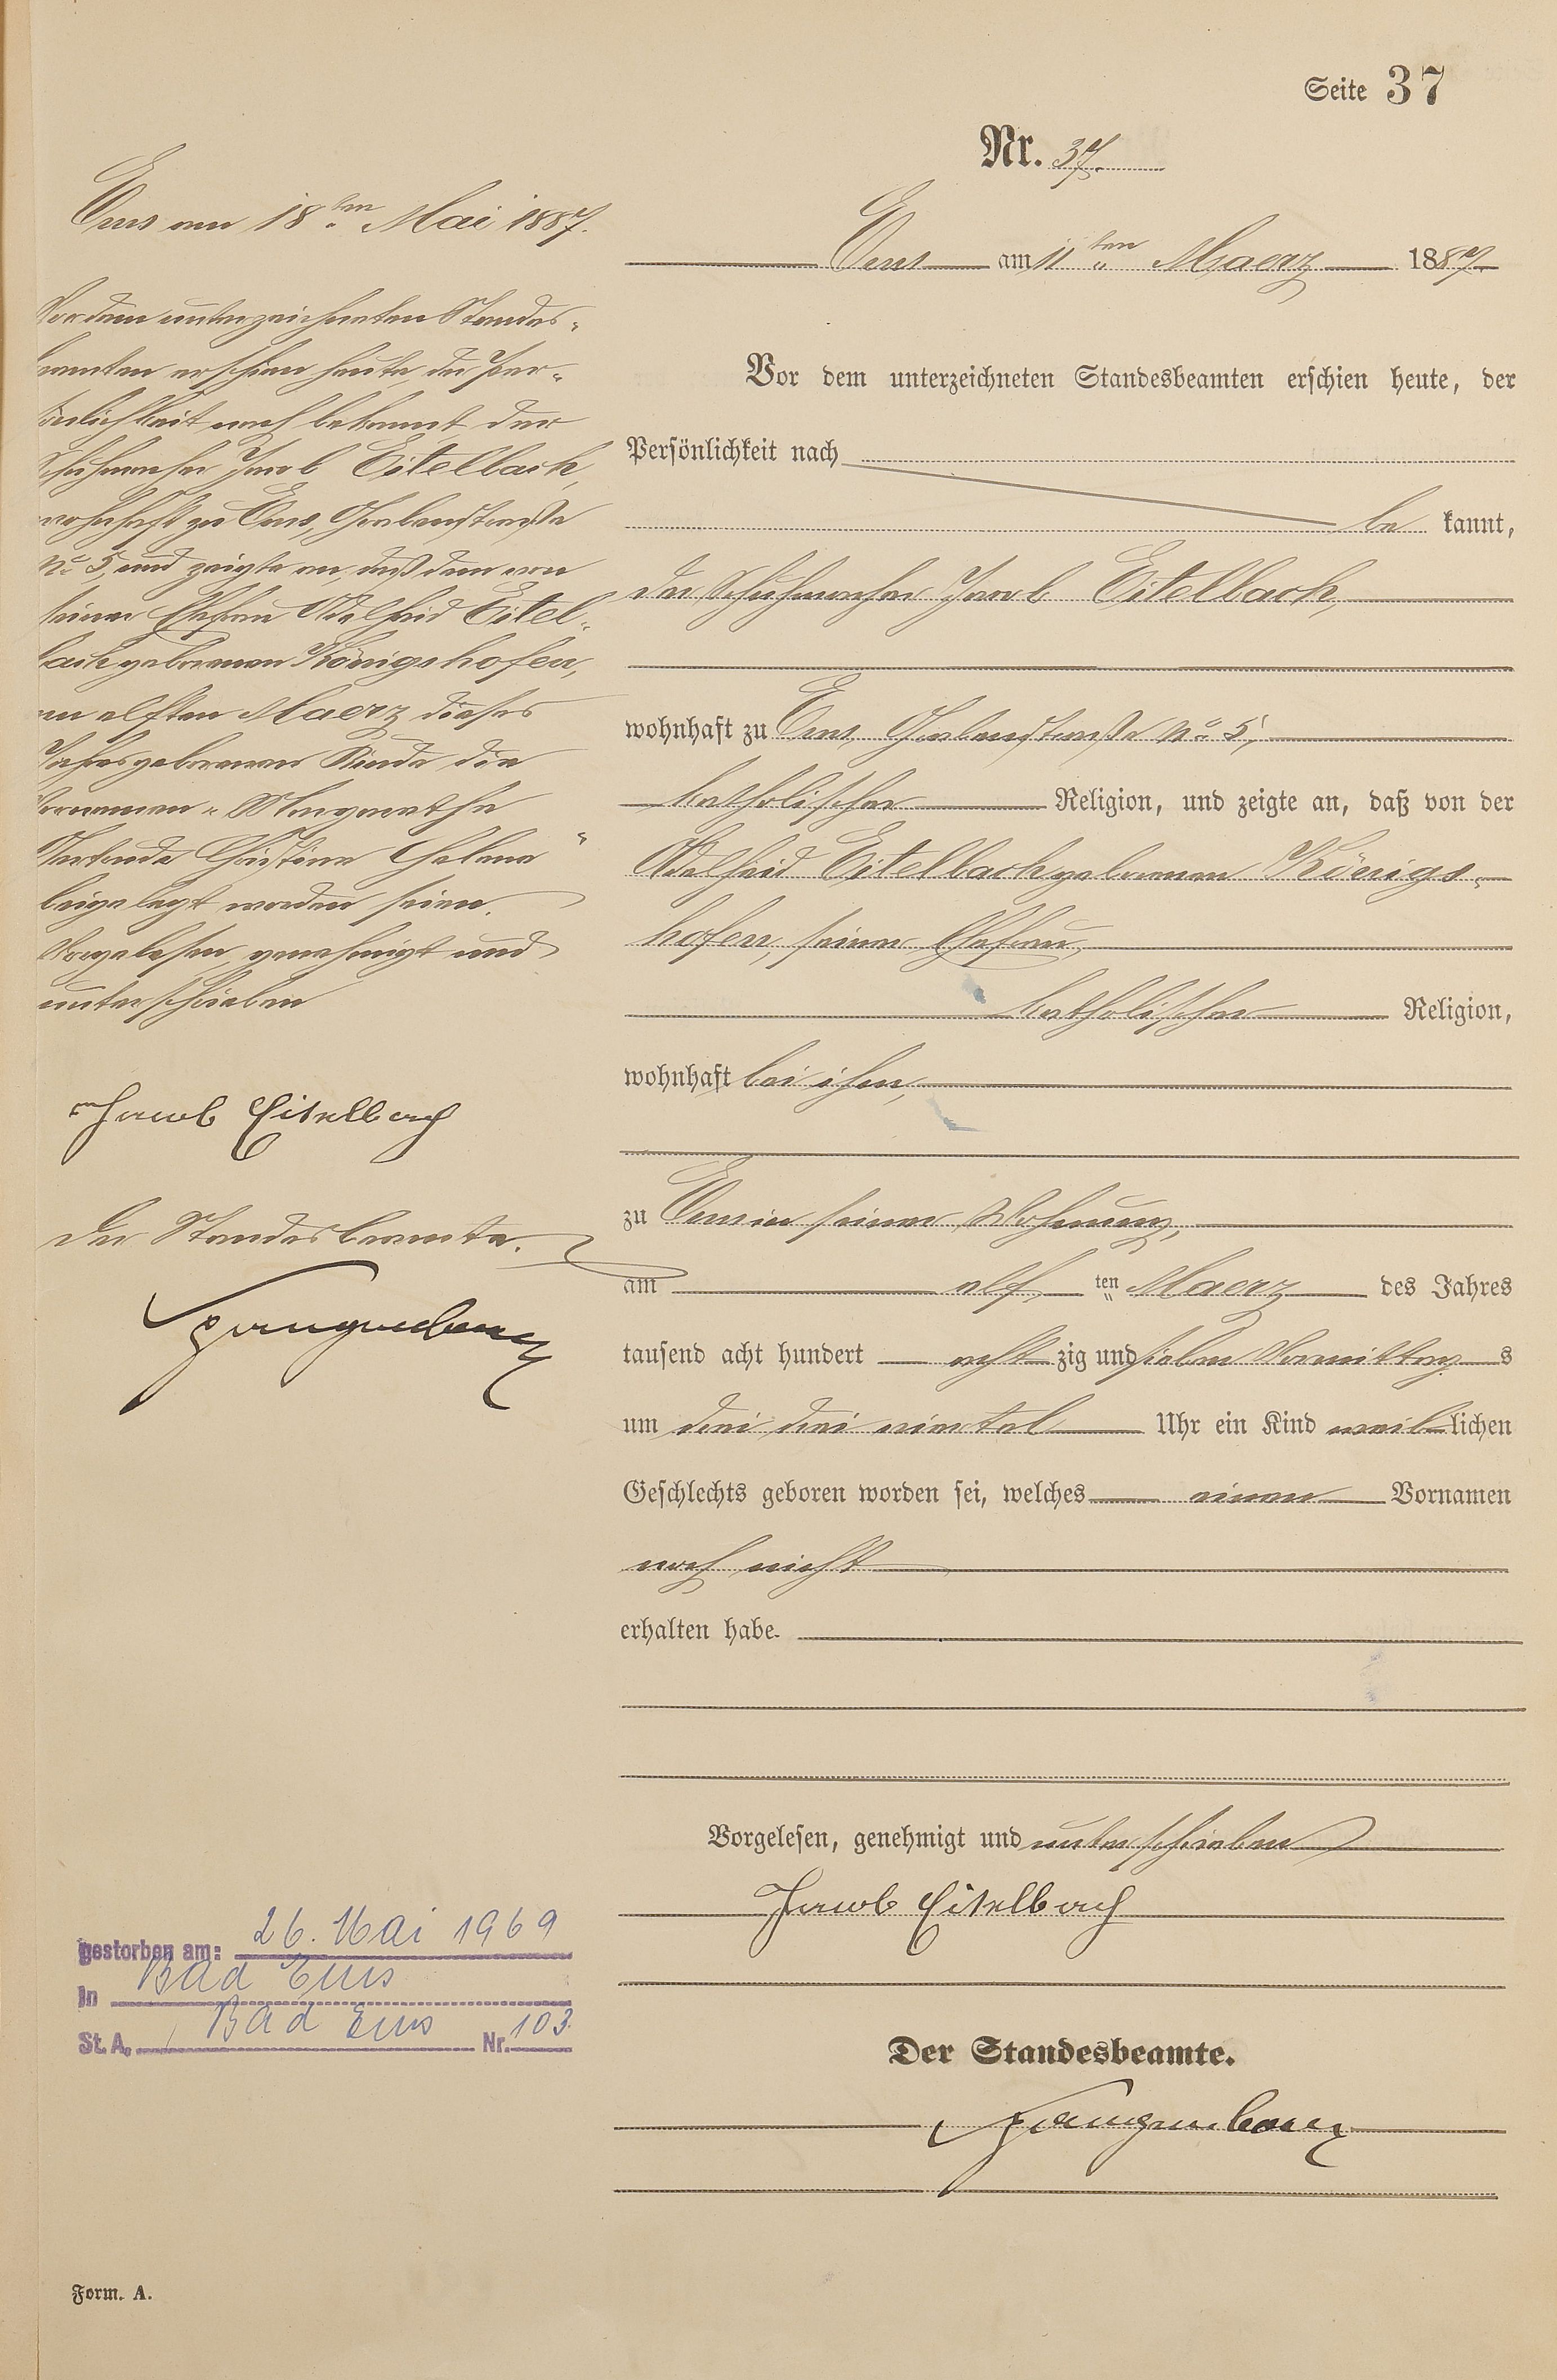 Seite 37
Nr. 37.
Ems am 11ten Maerz 1887.
Vor dem unterzeichneten Standesbeamten erschien heute, der
Persönlichkeit nach
be kannt,
der Schuhmacher Jacob Eitelbach,
wohnhaft zu Ems, Grabenstraße No 5,
katholischer Religion, und zeigte an, daß von der
Adelheid Eitelbach geborenen Königs-
hofen, seiner Ehefrau,
katholischer Religion,
wohnhaft bei ihm,
zu Ems in seiner Wohnung,
am elf ten Maerz des Jahres
tausend acht hundert acht zig und sieben Vormittag s
um drei drei viertel Uhr ein Kind weib lichen
Geschlechts geboren worden sei, welches einen Vornamen
noch nicht
erhalten habe.
Vorgelesen, genehmigt und unterschrieben
Jacob Eitelbach
Der Standesbeamte.
Spangenberg
Ems am 18ten Mai 1887.
Vor dem unterzeichneten Standes-
beamten erschien heute, der Per-
sönlichkeit nach bekannt der
Schuhmacher Jacob Eitelbach,
wohnhaft zu Ems, Grabenstraße
No 5, und zeigte an, daß dem von
seiner Ehefrau Adelheid Eitel-
bach geborenen Königshofen,
am elften Maerz dieses
Jahres geborenen Kinde die
Vornamen "Margarethe
Gertrude Christine Helene"
beigelegt worden seien.
Vorgelesen, genehmigt und
unterschrieben
Jacob Eitelbach
Der Standesbeamte.
Spangenberg
gestorben am: 26. Mai 1969
In Bad Ems
St. A. Bad Ems Nr. 103
Form. A.